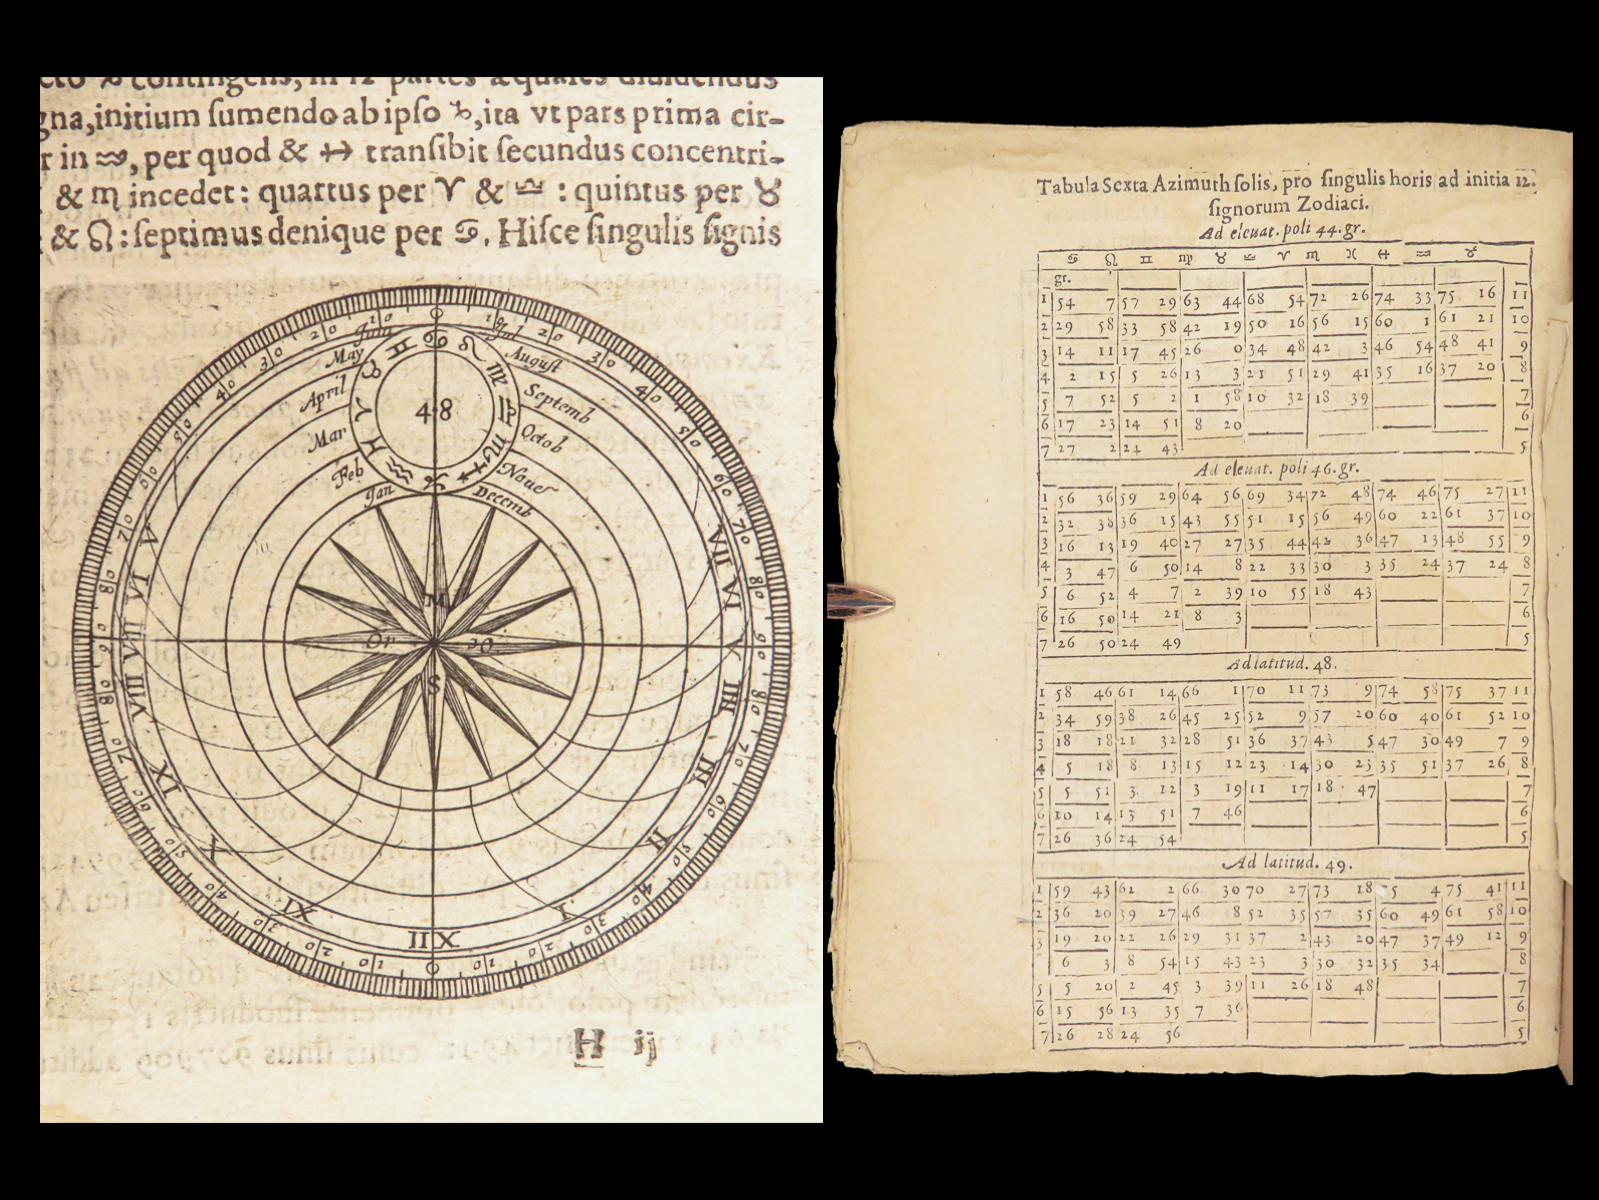 contingens, in 12 partes æquales diuidendus
gna, initium ſumendo ab ipſo ♑, ita vt pars prima cir-
r in ♒, per quod & ♐ tranſibit ſecundus concentri-
& ♏ incedet: quartus per ♈ & ♎ : quintus per ♉
& ♌ : ſeptimus denique per ♋. Hiſce ſingulis ſignis
Jun Jul
May August
April Septemb
Mar Octob
Feb Nouer
Jan Decemb
♊ ♋ ♌ ♍ ♎ ♏ ♐ ♑ ♒ ♓ ♈ ♉
48
M
Or Oc
S
V VI VII VIII IX X XI XII I II III IIII V VI VII
H ij
Tabula Sexta Azimuth ſolis, pro ſingulis horis ad initia 12.
ſignorum Zodiaci.
Ad eleuat. poli 44. gr.
♋ ♌ ♊ ♍ ♉ ♎ ♈ ♏ ♓ ♐ ♒ ♑
gr. '
1 54 7 57 29 63 44 68 54 72 26 74 33 75 16 11
2 29 58 33 58 42 19 50 16 56 15 60 1 61 21 10
3 14 11 17 45 26 0 34 48 42 3 46 54 48 41 9
4 2 15 5 26 13 3 21 51 29 41 35 16 37 20 8
5 7 52 5 2 1 58 10 32 18 39 7
6 17 23 14 51 8 20 6
7 27 2 24 43 5
Ad eleuat. poli 46. gr.
1 56 36 59 29 64 56 69 34 72 48 74 46 75 27 11
2 32 38 36 15 43 55 51 15 56 49 60 22 61 37 10
3 16 13 19 40 27 27 35 44 42 36 47 13 48 55 9
4 3 47 6 50 14 8 22 33 30 3 35 24 37 24 8
5 6 52 4 7 2 39 10 55 18 43 7
6 16 50 14 21 8 3 6
7 26 50 24 49 5
Ad latitud. 48.
1 58 46 61 14 66 1 70 11 73 9 74 58 75 37 11
2 34 59 38 26 45 25 52 9 57 20 60 40 61 52 10
3 18 18 21 32 28 51 36 37 43 5 47 30 49 7 9
4 5 18 8 13 15 12 23 14 30 23 35 51 37 26 8
5 5 51 3 12 3 19 11 17 18 47 7
6 10 14 13 51 7 46 6
7 26 36 24 54 5
Ad latitud. 49.
1 59 43 62 2 66 30 70 27 73 18 5 4 75 41 11
2 36 20 39 27 46 8 52 35 57 35 60 49 61 58 10
3 19 20 22 26 29 31 37 2 43 20 47 37 49 12 9
6 3 8 54 15 43 23 3 30 32 35 34 8
5 5 20 2 45 3 39 11 26 18 48 7
6 15 56 13 35 7 36 6
7 26 28 24 56 5